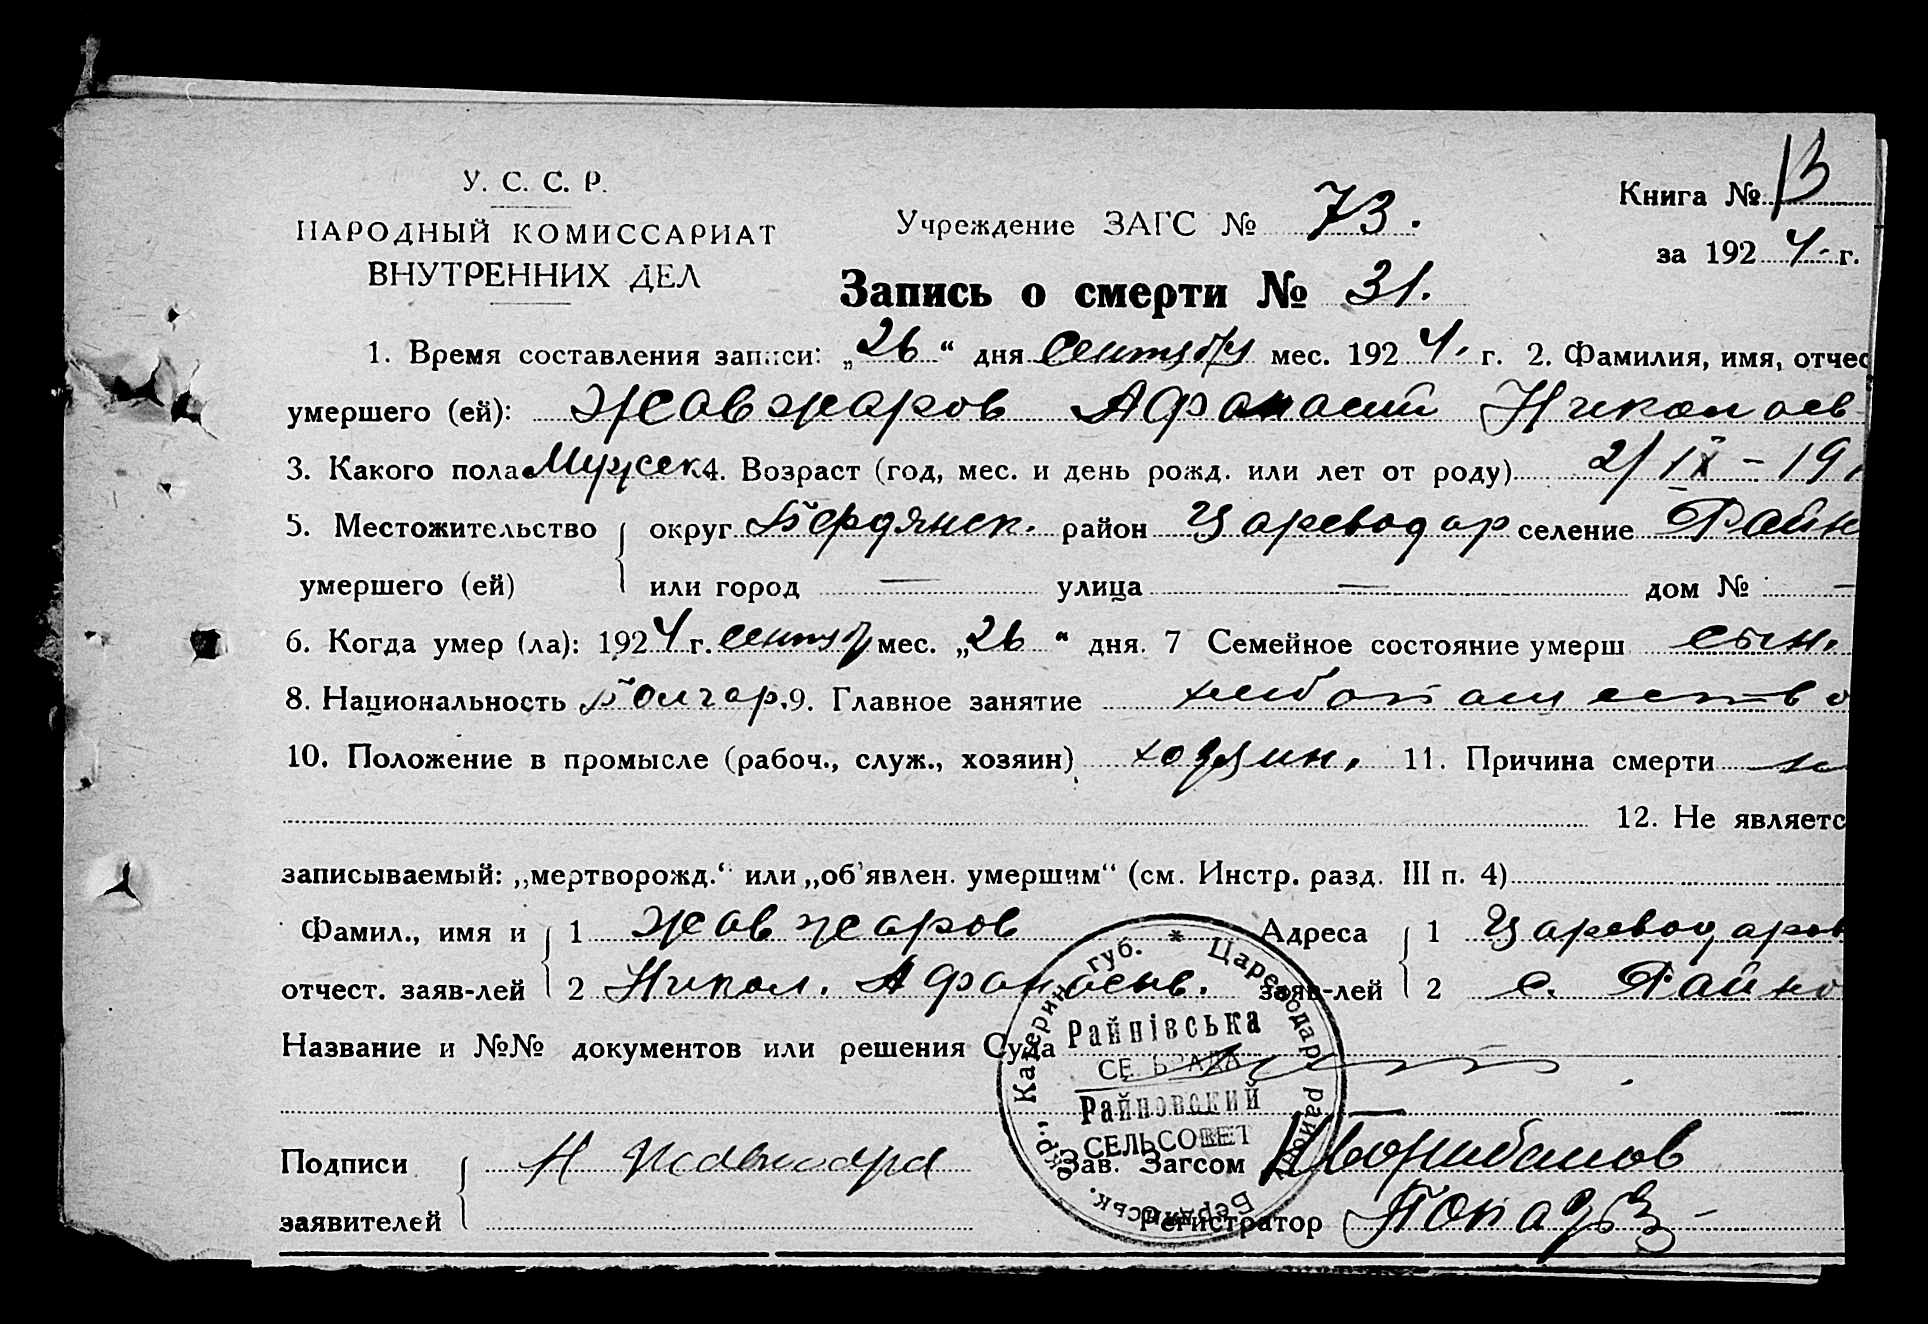 У. С. С. Р.
НАРОДНЫЙ КОМИССАРИАТ
ВНУТРЕННИХ ДЕЛ
Учреждение ЗАГС № 73.
Книга № 13
за 1924. г.
Запись о смерти № 31.
1. Время составления записи: „26“ дня сентября мес. 1924. г. 2. Фамилия, имя, отчес
умершего (ей): Жавжаров Афанасий Николаев
3. Какого пола Мужск. 4. Возраст (год, мес. и день рожд. или лет от роду) 2/IX - 19
5. Местожительство { округ Бердянск. район Цареводар селение Райно
умершего (ей) или город — улица — дом № —
6. Когда умер (ла): 1924 г. сентяб мес. „26“ дня. 7 Семейное состояние умерш сын.
8. Национальность Болгар. 9. Главное занятие хлебопашество
10. Положение в промысле (рабоч., служ., хозяин) хозяин. 11. Причина смерти
12. Не являетс
записываемый: „мертворожд.“ или „об'явлен. умершим“ (см. Инстр. разд. III п. 4)
Фамил., имя и { 1 Жавжаров Адреса { 1 Цареводаров
отчест. заяв-лей 2 Никол. Афанасьев. заяв-лей 2 с. Райно
Название и №№ документов или решения Суда
Подписи { Н Жавжаров Зав. Загсом
заявителей Регистратор
Катерин. губ. * Цареводар. район Бердянськ. окр.,
Райнівська
СЕЛЬРАДА
Райновский
СЕЛЬСОВЕТ